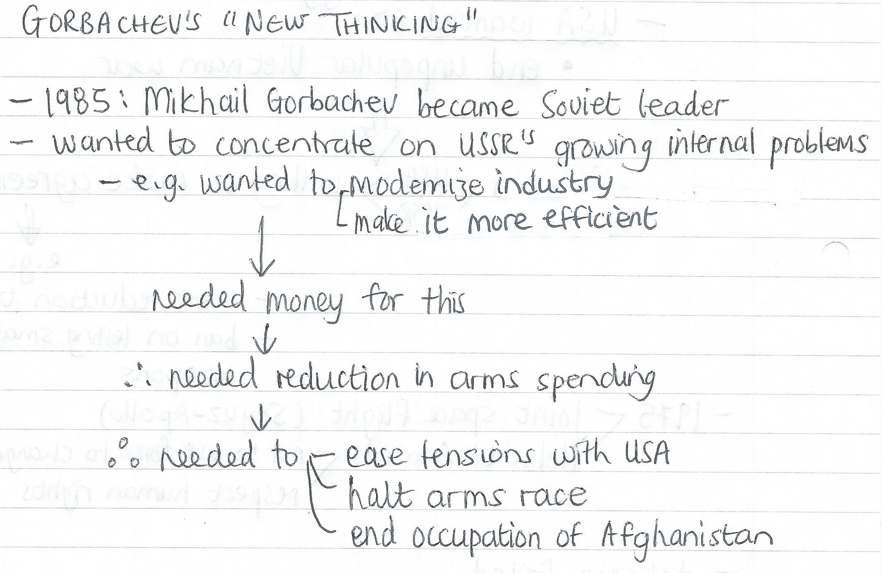 GORBACHEV'S "NEW THINKING"
– 1985: Mikhail Gorbachev became Soviet leader
– wanted to concentrate on USSR's growing internal problems
– e.g. wanted to modernize industry
make it more efficient
↓
needed money for this
↓
∴ needed reduction in arms spending
↓
∴ needed to – ease tensions with USA
halt arms race
end occupation of Afghanistan